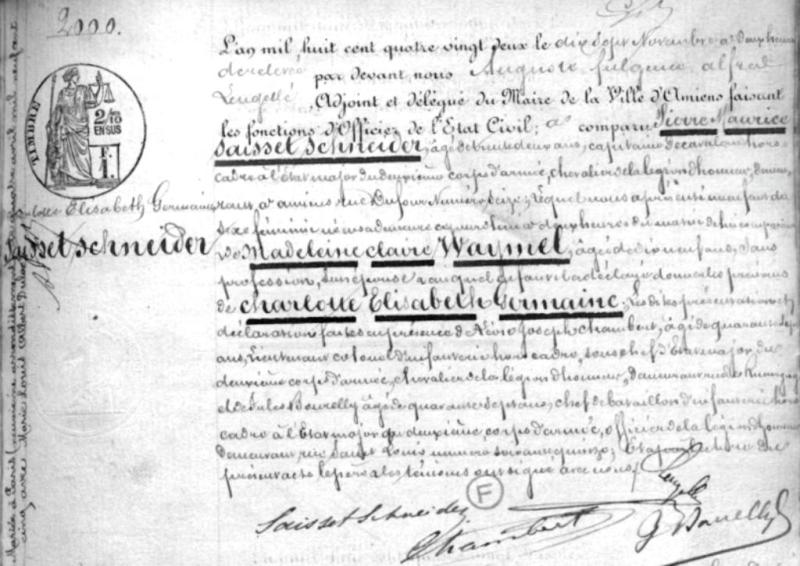 2000.
L'an mil, huit cent quatre vingt deux le dix sept Novembre à deux heures
de relevée par devant nous Auguste fulgence alfred
Lengellé, Adjoint et délégué du Maire de la Ville d'Amiens faisant
les fonctions d'Officier de l'Etat Civil; a comparu Pierre Maurice
Saisset Schneider, âgé de trente deux ans, capitaine de cavalerie hors
cadre à l'Etat major du deuxième corps d'armée, chevalier de la légion d'honneur, demeu-
rant à amiens rue Dufour Numéro seize; Lequel nous a présenté un enfant du
sexe féminin né en sa demeure aujourd'hui à deux heures du matin de lui comparant
de Madeleine Claire Waymel, âgée de dix neuf ans, sans
profession, son épouse & auquel enfant il a déclaré donner les prénoms
de Charlotte Elisabeth Germaine; Les dites présentation et
déclaration faites en présence de Joseph Chambert, âgé de quarante sept
ans, Lieutenant colonel d'infanterie hors cadre, sous chef d'Etat major du
deuxième corps d'armée, chevalier de la légion d'honneur, demeurant rue
et de Jules Bourelly âgé de quarante sept ans, chef de bataillon d'infanterie hors
cadre à l'Etat major du deuxième corps d'armée, officier de la légion d'honneur
demeurant rue Saint Louis numéro soixante quinze; Et après lecture du
présent acte le père & les témoins ont signé avec nous.
TIMBRE
2/10
EN SUS
F.
1.
Charlotte Elisabeth Germaine
Saisset Schneider
Mariée à Paris
avec Marie Louis Albert
F
Saisset Schneider
Chambert
Lengellé
J Bourelly